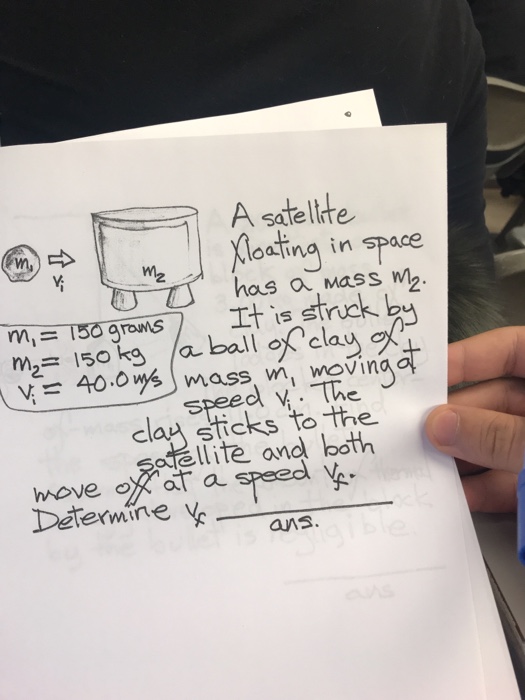 A satellite
floating in space
has a mass m₂.
It is struck by
a ball of clay of
mass m₁ moving at
speed vᵢ. The
clay sticks to the
satellite and both
move off at a speed v_f.
Determine v_f ________
ans.
m₁
vᵢ
m₂
m₁ = 150 grams
m₂ = 150 kg
vᵢ = 40.0 m/s
ans